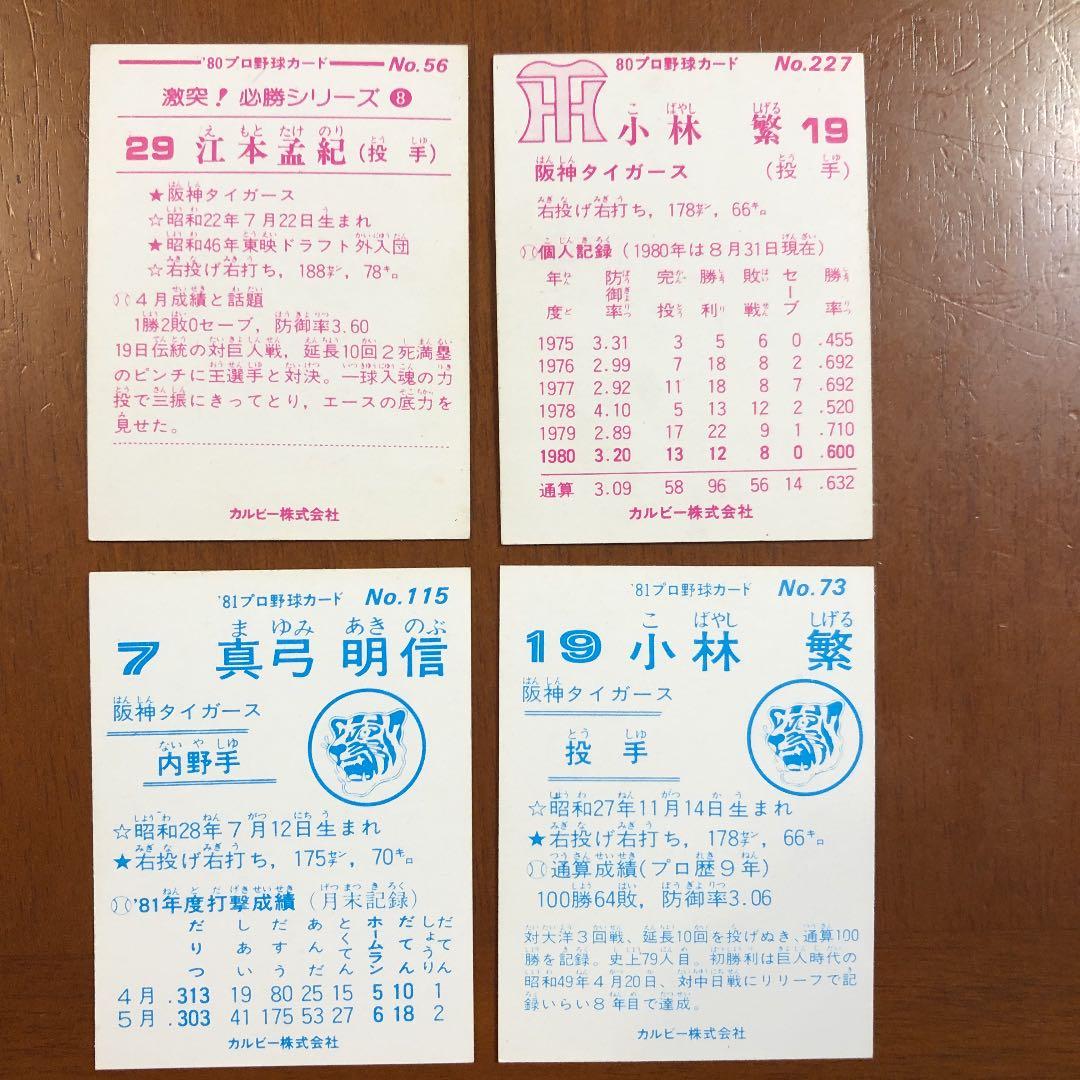 '80プロ野球カード No.56
激突！必勝シリーズ 8
29 江本孟紀（投手）
えもと たけのり とうしゅ
★阪神タイガース
☆昭和22年7月22日生まれ
★昭和46年東映ドラフト外入団
☆右投げ右打ち，188センチ，78キロ
4月成績と話題
1勝2敗0セーブ，防御率3.60
19日伝統の対巨人戦，延長10回2死満塁
のピンチに王選手と対決。一球入魂の力
投で三振にきってとり，エースの底力を
見せた。
カルビー株式会社
80プロ野球カード No.227
TH
こばやし しげる
小林 繁 19
阪神タイガース （投手）
右投げ右打ち，178センチ，66キロ
個人記録（1980年は8月31日現在）
年度 防御率 完投 勝利 敗戦 セーブ 勝率
1975 3.31 3 5 6 0 .455
1976 2.99 7 18 8 2 .692
1977 2.92 11 18 8 7 .692
1978 4.10 5 13 12 2 .520
1979 2.89 17 22 9 1 .710
1980 3.20 13 12 8 0 .600
通算 3.09 58 96 56 14 .632
カルビー株式会社
'81プロ野球カード No.115
まゆみ あきのぶ
7 真弓明信
はんしん
阪神タイガース
ないやしゅ
内野手
☆昭和28年7月12日生まれ
★右投げ右打ち，175センチ，70キロ
'81年度打撃成績（月末記録）
だりつ しあい だすう あんだ とくてん ホームラン だてん しょうりだてん
4月 .313 19 80 25 15 5 10 1
5月 .303 41 175 53 27 6 18 2
カルビー株式会社
'81プロ野球カード No.73
こばやし しげる
19 小林 繁
はんしん
阪神タイガース
とうしゅ
投手
☆昭和27年11月14日生まれ
★右投げ右打ち，178センチ，66キロ
通算成績(プロ歴9年)
100勝64敗，防御率3.06
対大洋3回戦、延長10回を投げぬき、通算100
勝を記録。史上79人目。初勝利は巨人時代の
昭和49年4月20日、対中日戦にリリーフで記
録いらい8年目で達成。
カルビー株式会社